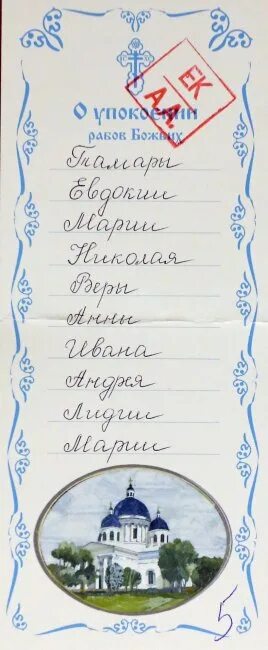 О упокоении
рабов Божиих
ЕК
АД
Тамары
Евдокии
Марии
Николая
Веры
Анны
Ивана
Андрея
Лидии
Марии
5